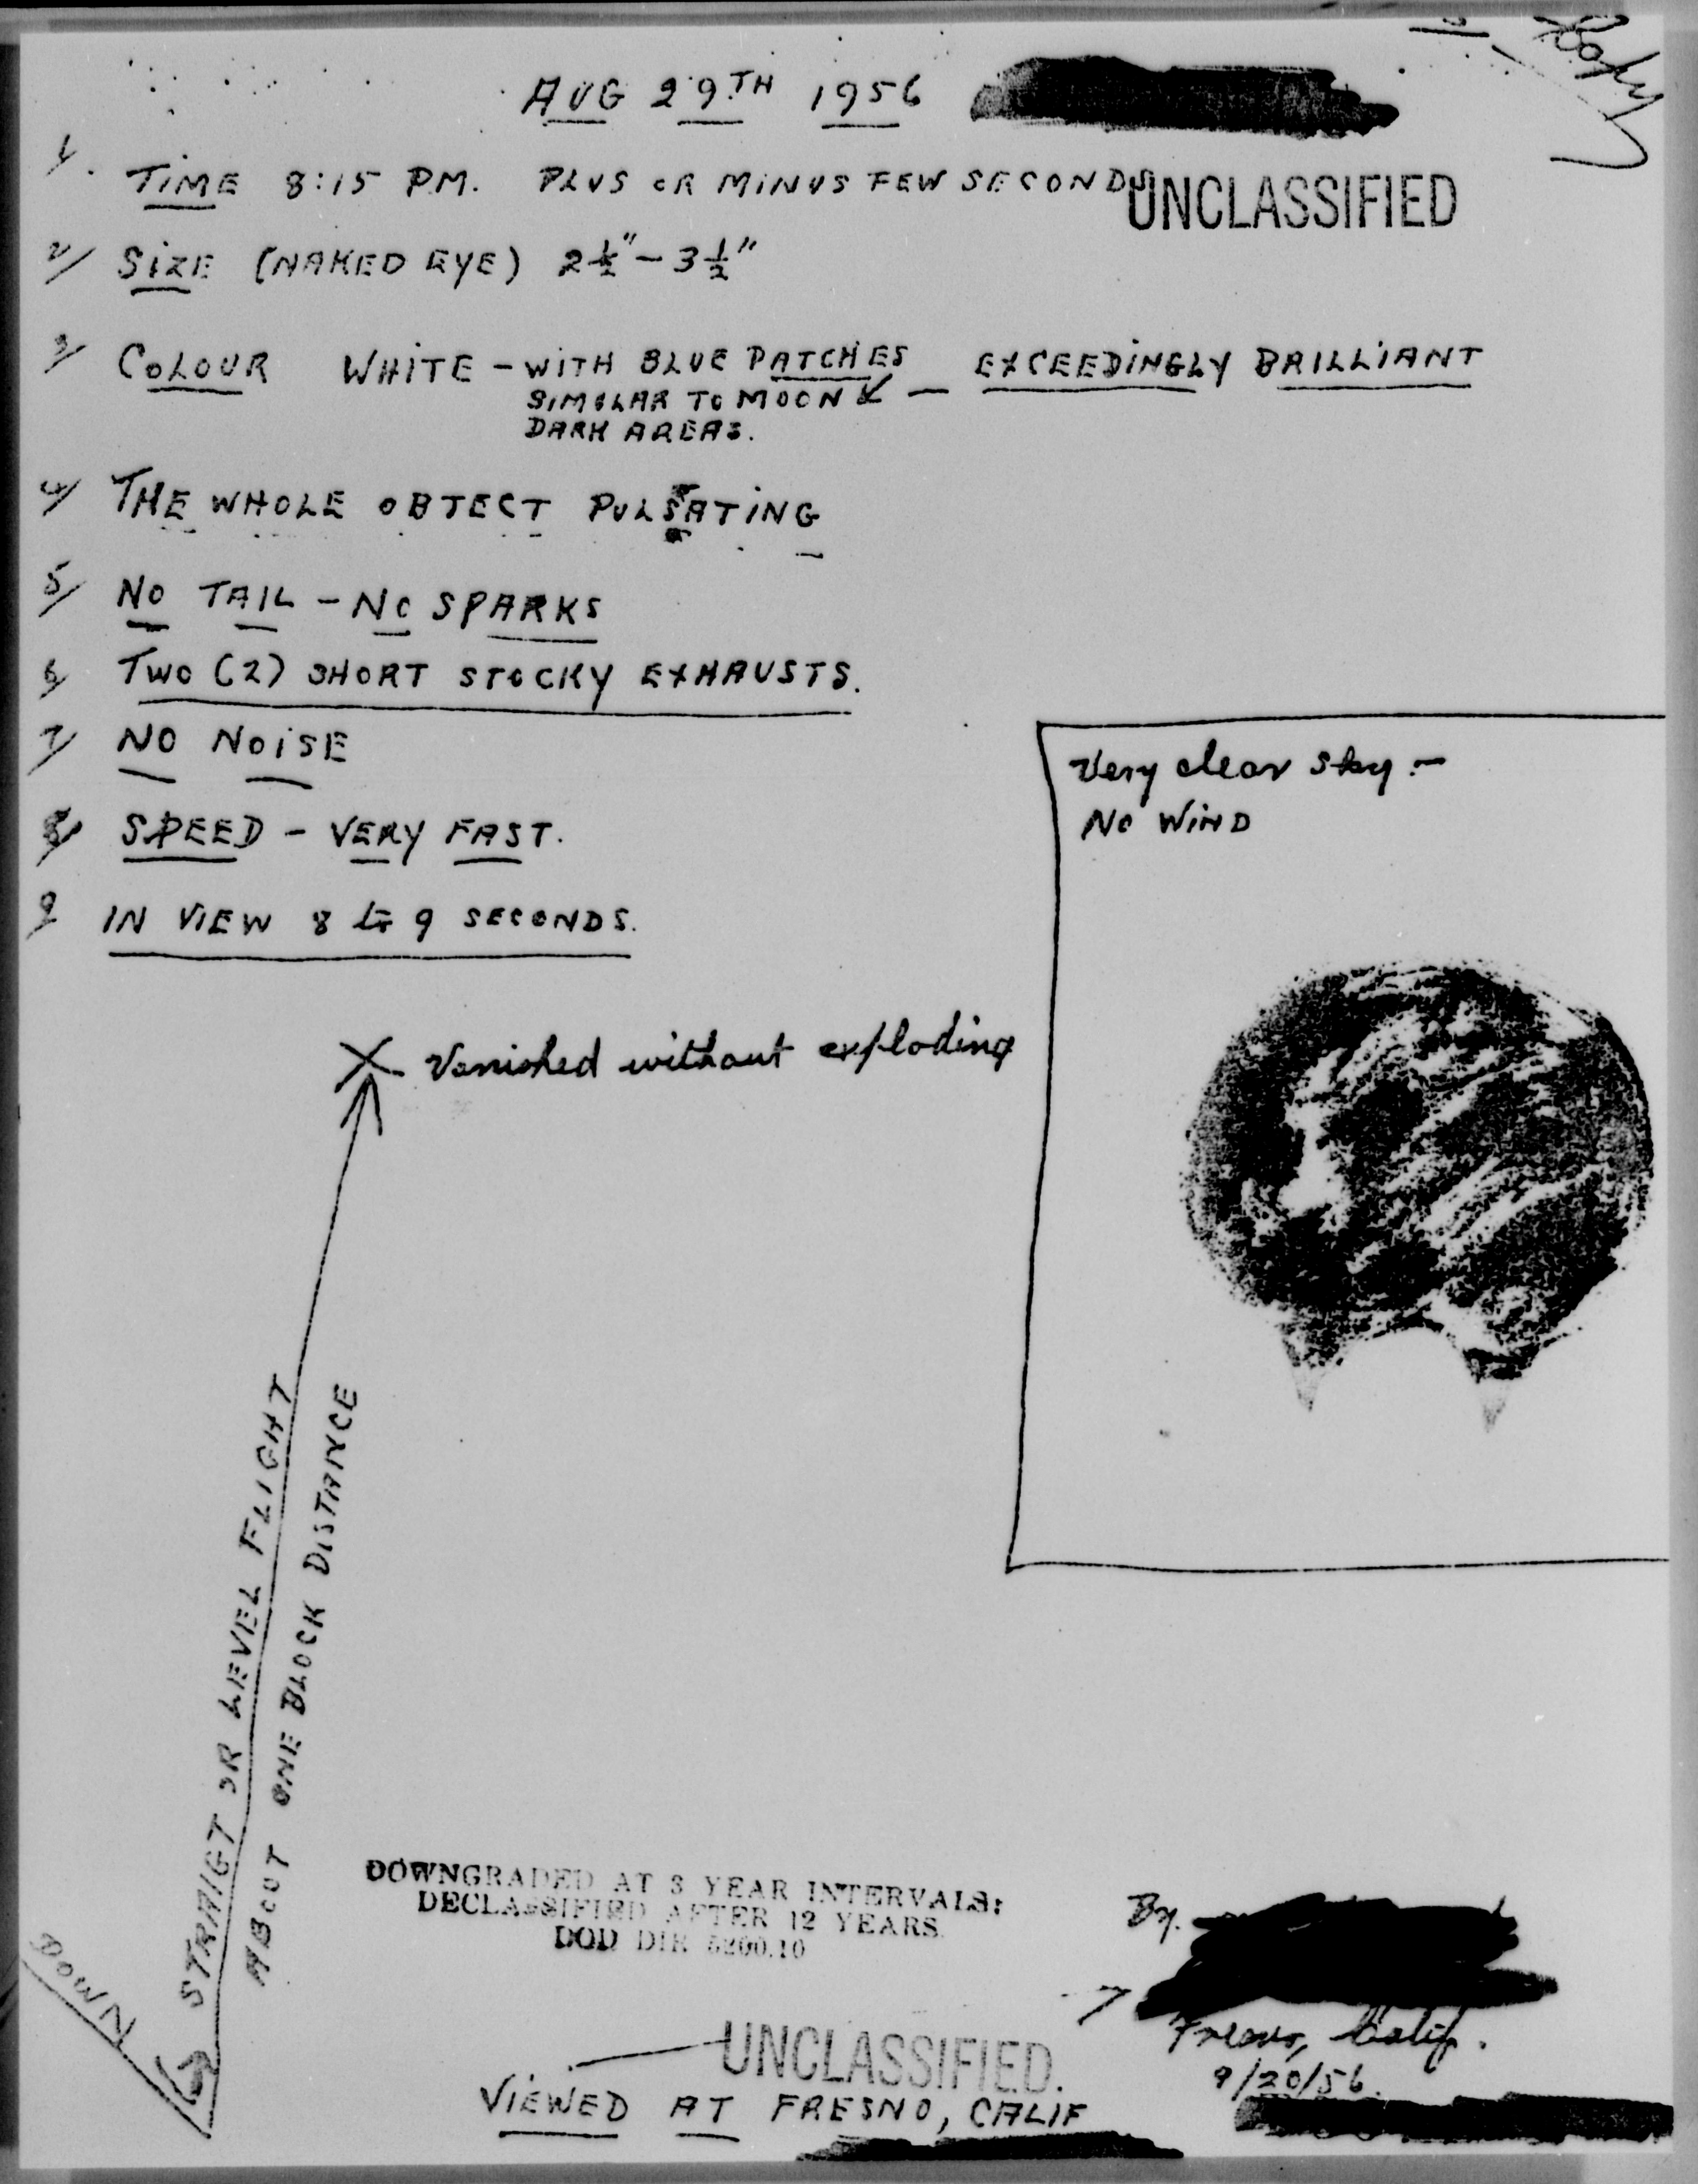 Copy
AUG 29TH 1956
1. TIME 8:15 P.M. PLUS OR MINUS FEW SECONDS
UNCLASSIFIED
2/ SIZE (NAKED EYE) 2½" - 3½"
3/ COLOUR WHITE - WITH BLUE PATCHES - EXCEEDINGLY BRILLIANT
SIMILAR TO MOON
DARK AREAS.
4/ THE WHOLE OBJECT PULSATING
5/ NO TAIL - NO SPARKS
6/ TWO (2) SHORT STOCKY EXHAUSTS.
7/ NO NOISE
8/ SPEED - VERY FAST.
9/ IN VIEW 8 to 9 SECONDS.
Very clear sky -
NO WIND
X Vanished without exploding
STRAIGT OR LEVEL FLIGHT
ABOUT ONE BLOCK DISTANCE
DOWN
DOWNGRADED AT 3 YEAR INTERVALS:
DECLASSIFIED AFTER 12 YEARS.
DOD DIR 5200.10
By.
Fresno, Calif.
9/20/56.
UNCLASSIFIED.
VIEWED AT FRESNO, CALIF